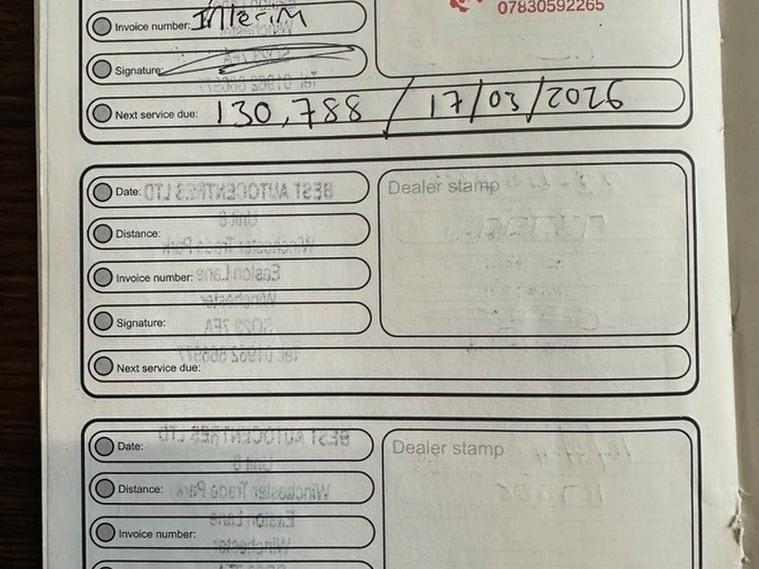 07830592265
Invoice number: Interim
Signature:
Next service due: 130,788 / 17/03/2026
Date:
Dealer stamp
Distance:
Invoice number:
Signature:
Next service due:
Date:
Dealer stamp
Distance:
Invoice number: